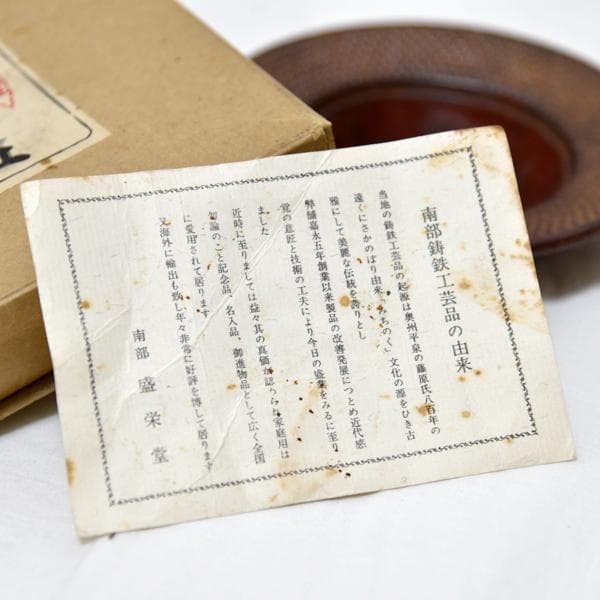 南部鋳鉄工芸品の由来
当地の鋳鉄工芸品の起源は奥州平泉の藤原氏八百年の
遠くにさかのぼり由来「みちのく」文化の源をひき古
雅にして美麗な伝統を誇りとし
弊舗嘉永五年創業以来製品の改善発展につとめ近代感
覚の意匠と技術の工夫により今日の盛業をみるに至り
ました
近時に至りましては益々其の真価が認められ家庭用は
勿論のこと記念品、名入品、御進物品として広く全国
に愛用されて居ります
又海外に輸出も致し年々非常に好評を博して居ります
南部 盛栄堂